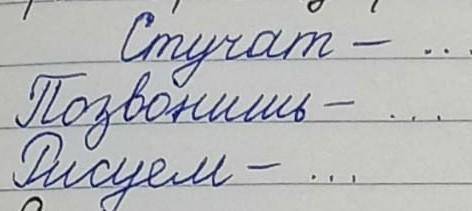 Стучат – ...
Позвонишь – ...
Рисуем – ...